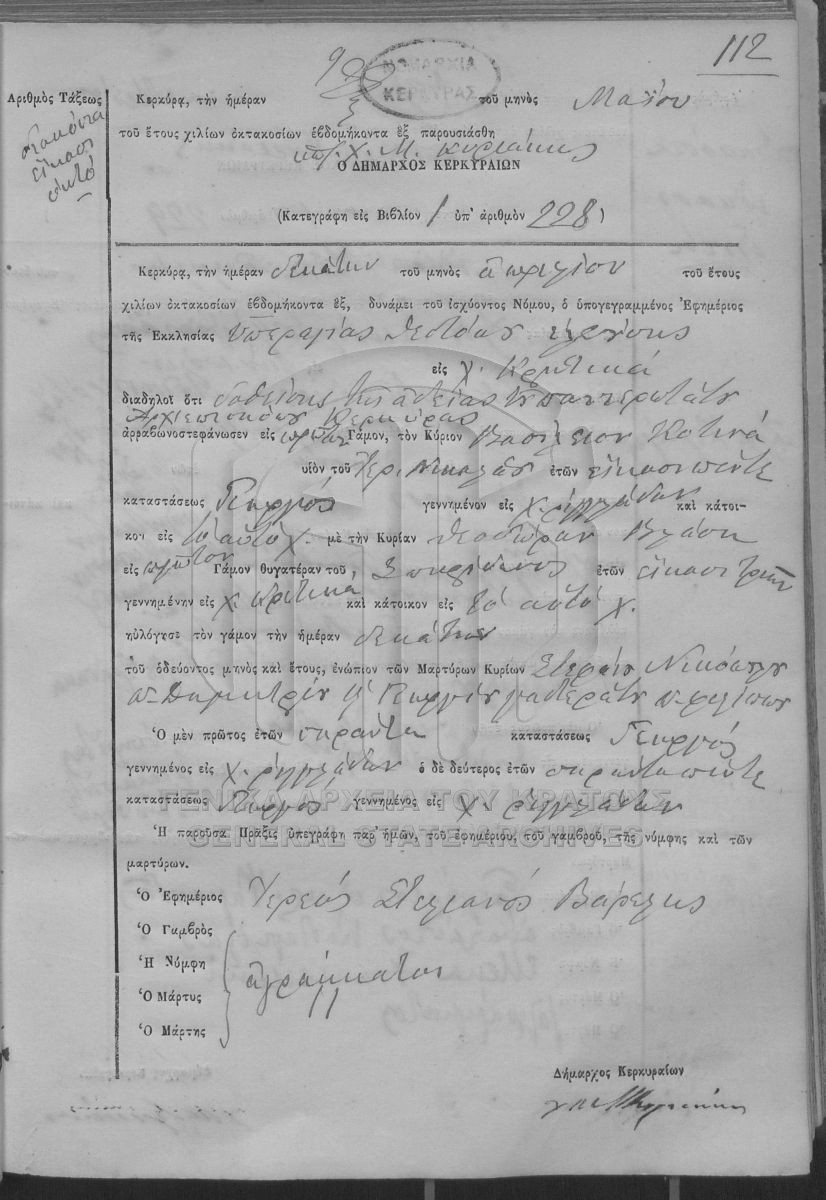 112
ΝΟΜΑΡΧΙΑ
ΚΕΡΚΥΡΑΣ
Ἀριθμὸς Τάξεως
διακόσια
εἴκοσι
ὀκτό
Κερκύρᾳ, τὴν ἡμέραν τοῦ μηνὸς Μαΐου
τοῦ ἔτους χιλίων ὀκτακοσίων ἑβδομήκοντα ἓξ παρουσιάσθη
Χ. Μ. Κυριάκης
Ὁ ΔΗΜΑΡΧΟΣ ΚΕΡΚΥΡΑΙΩΝ
(Κατεγράφη εἰς Βιβλίον 1 ὑπ' ἀριθμὸν 228)
Κερκύρᾳ, τὴν ἡμέραν δεκάτην τοῦ μηνὸς ἀπριλίου τοῦ ἔτους
χιλίων ὀκτακοσίων ἑβδομήκοντα ἕξ, δυνάμει τοῦ ἰσχύοντος Νόμου, ὁ ὑπογεγραμμένος Ἐφημέριος
τῆς Ἐκκλησίας Ὑπεραγίας Θεοτόκου
εἰς χ. Κρητικά
διαδηλοῖ ὅτι δοθείσης τῆς ἀδείας
Ἀρχιεπισκόπου Κερκύρας
ἀρραβωνοστεφάνωσεν εἰς πρῶτον Γάμον, τὸν Κύριον Βασίλειον Κοτινά
υἱὸν τοῦ ἐτῶν εἴκοσι πέντε
καταστάσεως Γεωργός γεννημένον εἰς χ. καὶ κάτοι-
κον εἰς τὸ αὐτό χ. μὲ τὴν Κυρίαν Θεοδώραν Βλάση
εἰς πρῶτον Γάμον θυγατέραν τοῦ Σπυρίδωνος ἐτῶν εἴκοσι τριῶν
γεννημένην εἰς χ. Κρητικά καὶ κάτοικον εἰς τὸ αὐτό χ.
ηὐλόγησε τὸν γάμον τὴν ἡμέραν δεκάτην
τοῦ ὁδεύοντος μηνὸς καὶ ἔτους, ἐνώπιον τῶν Μαρτύρων Κυρίων
Ὁ μὲν πρῶτος ἐτῶν σαράντα καταστάσεως Γεωργός
γεννημένος εἰς χ. ὁ δὲ δεύτερος ἐτῶν σαράντα πέντε
καταστάσεως Γεωργός γεννημένος εἰς χ.
ΓΕΝΙΚΑ ΑΡΧΕΙΑ ΤΟΥ ΚΡΑΤΟΥΣ
GENERAL STATE ARCHIVES
Ἡ παροῦσα Πρᾶξις ὑπεγράφη παρ' ἡμῶν, τοῦ ἐφημερίου, τοῦ γαμβροῦ, τῆς νύμφης καὶ τῶν
μαρτύρων.
Ὁ Ἐφημέριος Ἱερεύς Στυλιανός Βάρελης
Ὁ Γαμβρὸς
Ἡ Νύμφη
ἀγράμματοι
Ὁ Μάρτυς
Ὁ Μάρτης
Δήμαρχος Κερκυραίων